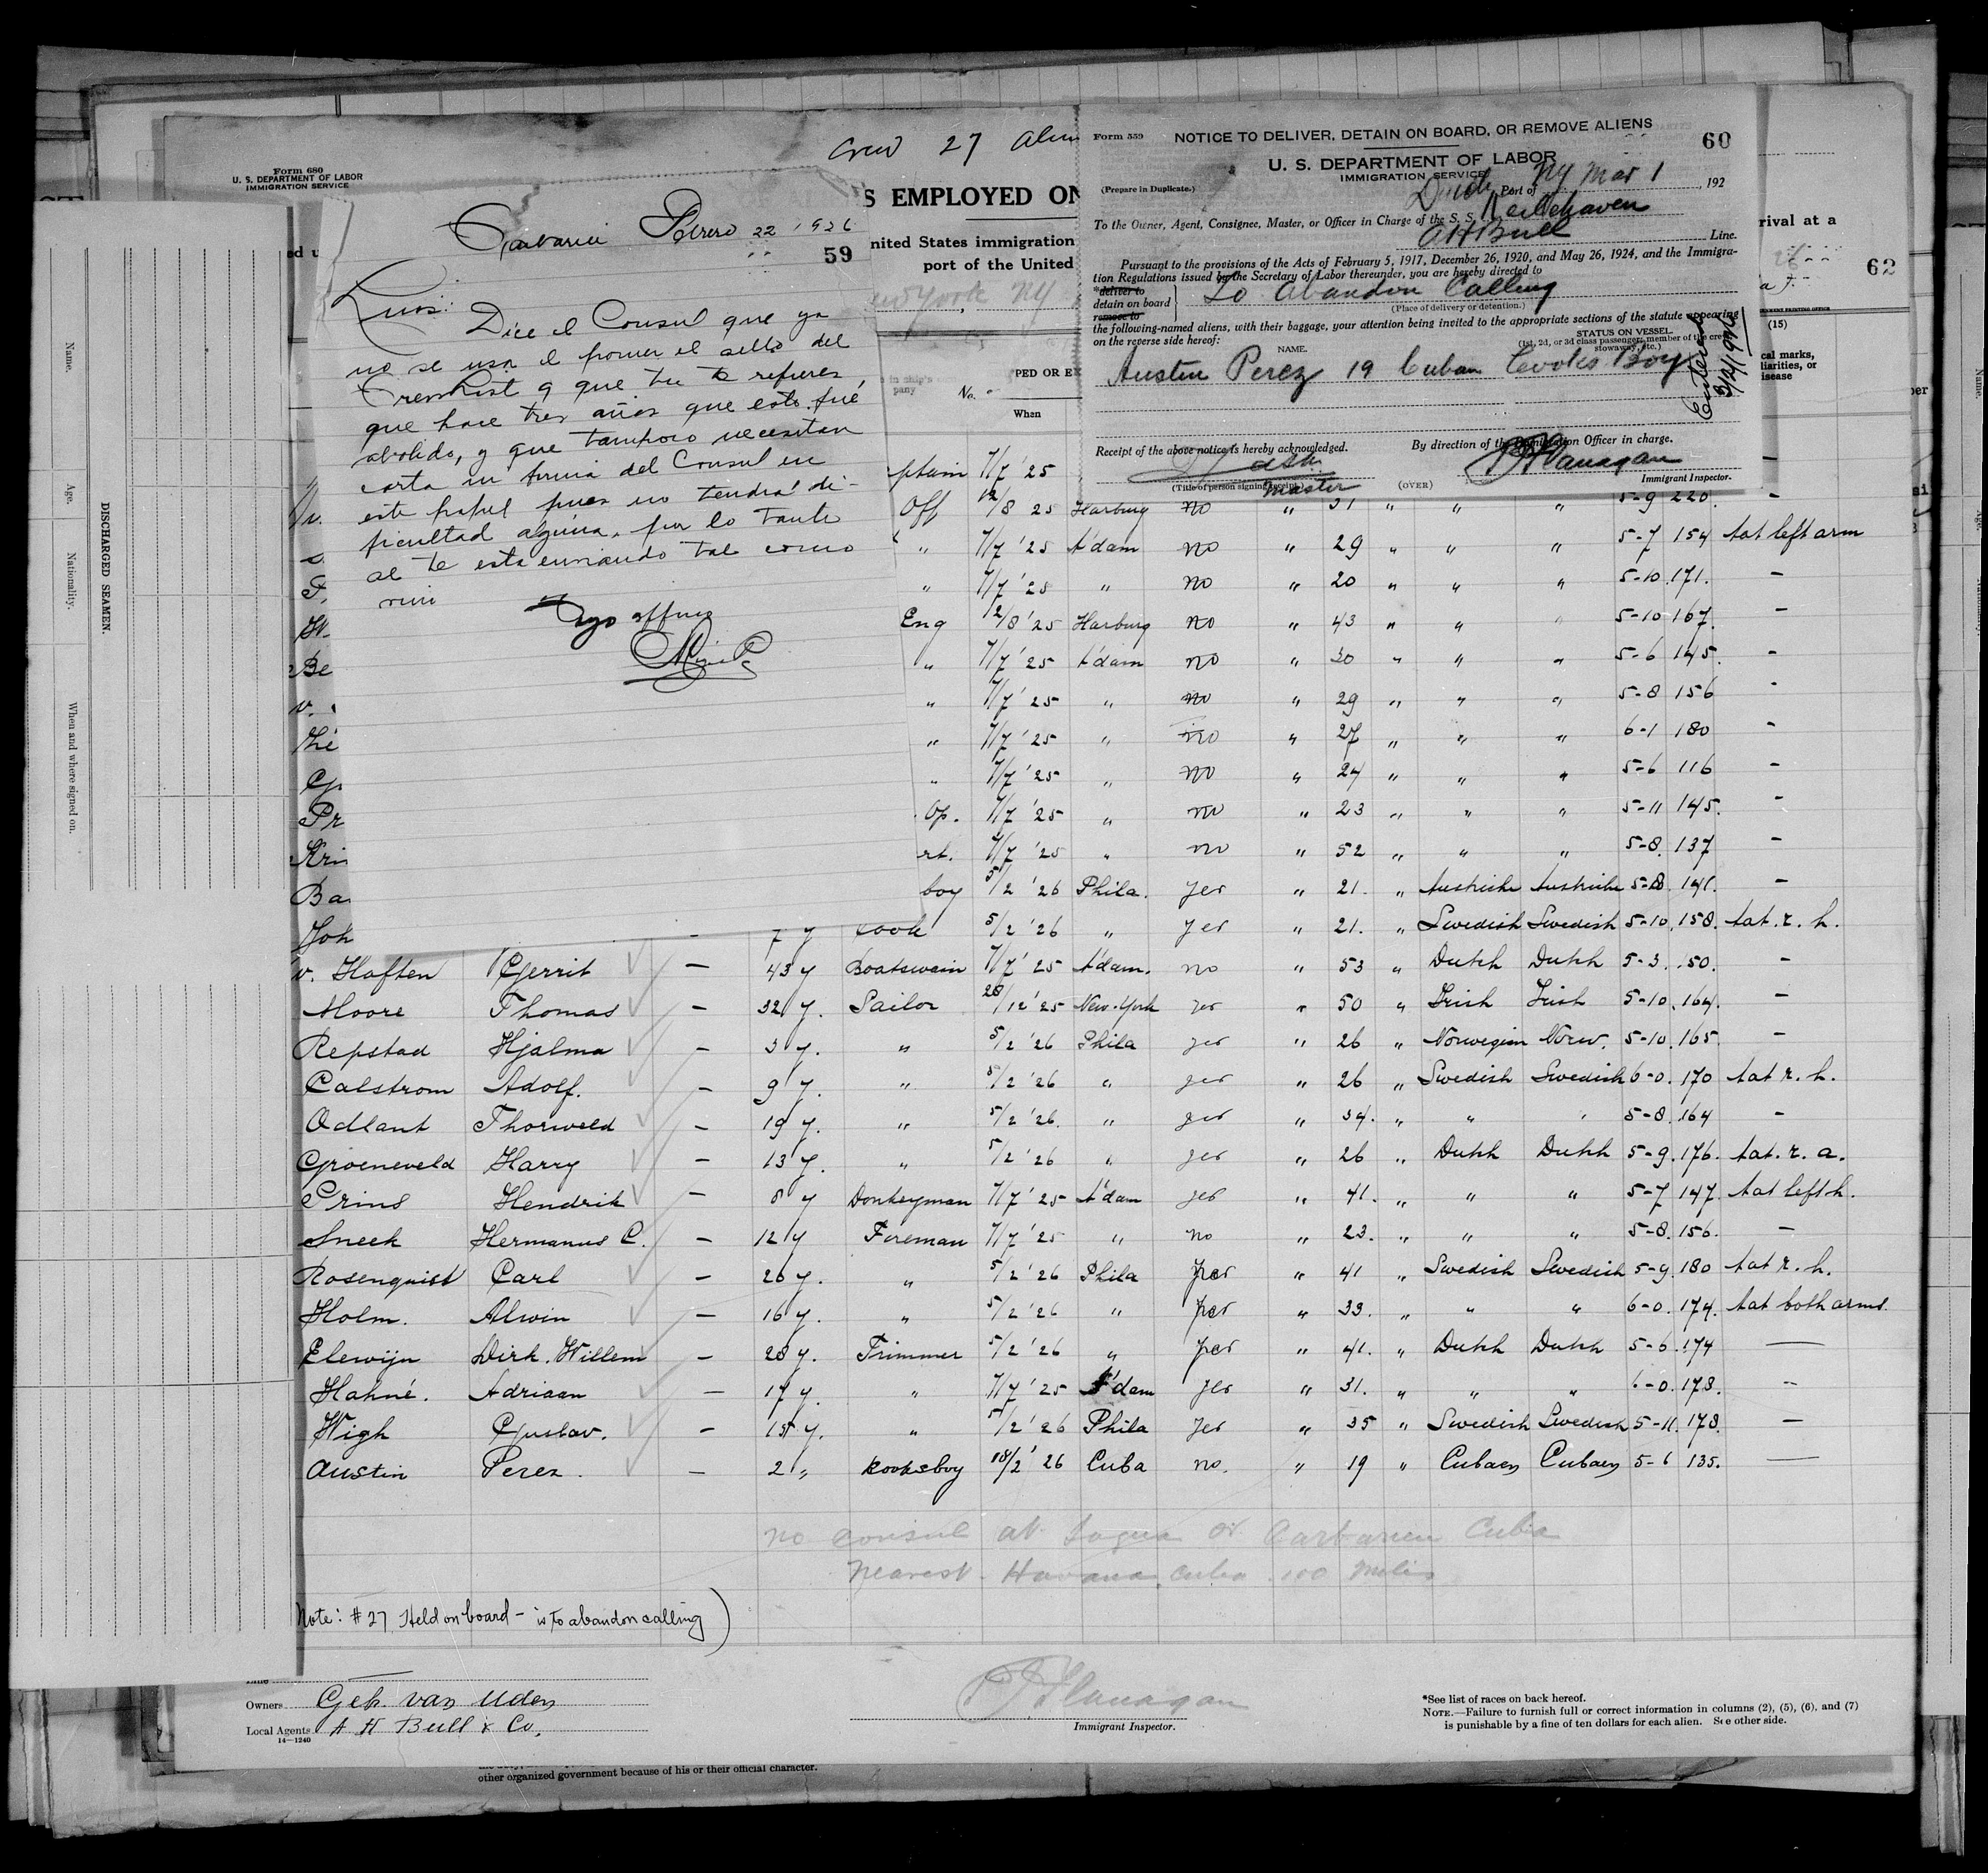 Crew 27 Alien
Form 680
U. S. DEPARTMENT OF LABOR
IMMIGRATION SERVICE
S EMPLOYED ON
nited States immigration
port of the United
New York NY
PED OR E
No.
When
rival at a
62
(15)
cal marks,
liarities, or
isease
Caibarien Febrero 22 1926
59
Luis:
Dice el Consul que ya
no se usa el poner el sello del
Crew List q que tu te refieres,
que hace tres años que esto fué
abolido, y que tampoco necesitan
carta ni firma del Consul en
este papel pues no tendrá di-
ficultad alguna, por lo tanto
se te está enviando tal como
vini
Form 559
NOTICE TO DELIVER, DETAIN ON BOARD, OR REMOVE ALIENS
60
U. S. DEPARTMENT OF LABOR
IMMIGRATION SERVICE
(Prepare in Duplicate.)
Port of NY Mar 1, 192
To the Owner, Agent, Consignee, Master, or Officer in Charge of the S. S. Dutch
A H Bull Line.
Pursuant to the provisions of the Acts of February 5, 1917, December 26, 1920, and May 26, 1924, and the Immigra-
tion Regulations issued by the Secretary of Labor thereunder, you are hereby directed to
*deliver to
detain on board
remove to
To Abandon Calling
(Place of delivery or detention.)
the following-named aliens, with their baggage, your attention being invited to the appropriate sections of the statute appearing
on the reverse side hereof:
NAME.
STATUS ON VESSEL.
(1st, 2d, or 3d class passenger; member of the crew;
stowaway, etc.)
Austin Perez 19 Cuban Cooks Boy
Entered
Receipt of the above notice is hereby acknowledged.
By direction of the Immigration Officer in charge.
Flanagan
Master
(Title of person signing receipt.)
(OVER)
Immigrant Inspector.
ptain 7/7 '25
Off 12/8 25 Harburg no " 31 " " " 5-9 220. -
" 7/7 '25 A'dam no " 29 " " " 5-7 154 tat left arm
" 7/7 '25 " no " 20 " " " 5-10. 171. -
Eng 12/8 '25 Harburg no " 43 " " " 5-10 167. -
" 7/7 '25 A'dam no " 30 " " " 5-6 145. -
" 7/7 '25 " no " 29 " " " 5-8 156 -
" 7/7 '25 " no " 27 " " " 6-1 180 -
" 7/7 '25 " no " 24 " " " 5-6 116 -
Op. 7/7 '25 " no " 23 " " " 5-11 145. -
rt. 7/7 '25 " no " 52 " " " 5-8. 137 -
Ba boy 5/2 '26 Phila. yes " 21. " 5-8. 141. -
Joh 7 y Cook 5/2 '26 " yes " 21. " Swedish Swedish 5-10. 158. tat. r. h.
v. Haften Gerrit - 43 y Boatswain 7/7 '25 A'dam. no " 53 " Dutch Dutch 5-3. 150. -
Moore Thomas - 32 y. Sailor 28/12 '25 New-York yes " 50 " Irish Irish 5-10. 164. -
Repstad Hjalma - 3 y. " 5/2 '26 Phila yes " 26 " Norwegian Norw. 5-10. 165. -
Calstrom Adolf. - 9 y. " 5/2 '26 " yes " 26 " Swedish Swedish 6-0. 170 tat r. h.
Odlant Thorweld - 19 y. " 5/2 '26. " yes " 34. " " " 5-8. 164 -
Groeneveld Harry - 13 y. " 5/2 '26 " yes " 26 " Dutch Dutch 5-9. 176. tat. r. a.
Prins Hendrik - 8 y Donkeyman 7/7 '25 A'dam yes " 41. " " " 5-7 147. tat left h.
Sneek Hermanus C. - 12 y Fireman 7/7 '25 " no " 23. " " " 5-8. 156. -
Rosenquist Carl - 26 y. " 5/2 '26 Phila yes " 41 " Swedish Swedish 5-9. 180 tat r. h.
Holm. Alwin - 16 y. " 5/2 '26 " yes " 33. " " " 6-0. 174. tat both arms.
Elewijn Dirk. Willem - 28 y. Trimmer 5/2 '26 " yes " 41. " Dutch Dutch 5-6. 174 -
Hahné. Adriaan - 17 y. " 7/7 '25 A'dam yes " 31. " " " 6-0. 178. -
Wigh Gustav. - 15 y. " 5/2 '26 Phila yes " 35 " Swedish Swedish 5-11. 178. -
Austin Perez. - 2 " Kooksboy 18/2 '26 Cuba no. " 19 " Cuban Cuban 5-6 135. -
no consul at Sagua or Caibarien Cuba
nearest - Havana, Cuba. 100 miles
Note: #27 Held on board - is to abandon calling)
Owners Geb. van Uden
Local Agents A H Bull & Co.
14—1240
Flanagan
Immigrant Inspector.
*See list of races on back hereof.
NOTE.—Failure to furnish full or correct information in columns (2), (5), (6), and (7)
is punishable by a fine of ten dollars for each alien. See other side.
other organized government because of his or their official character.
Name.
Age.
Nationality.
When and where signed on.
DISCHARGED SEAMEN.